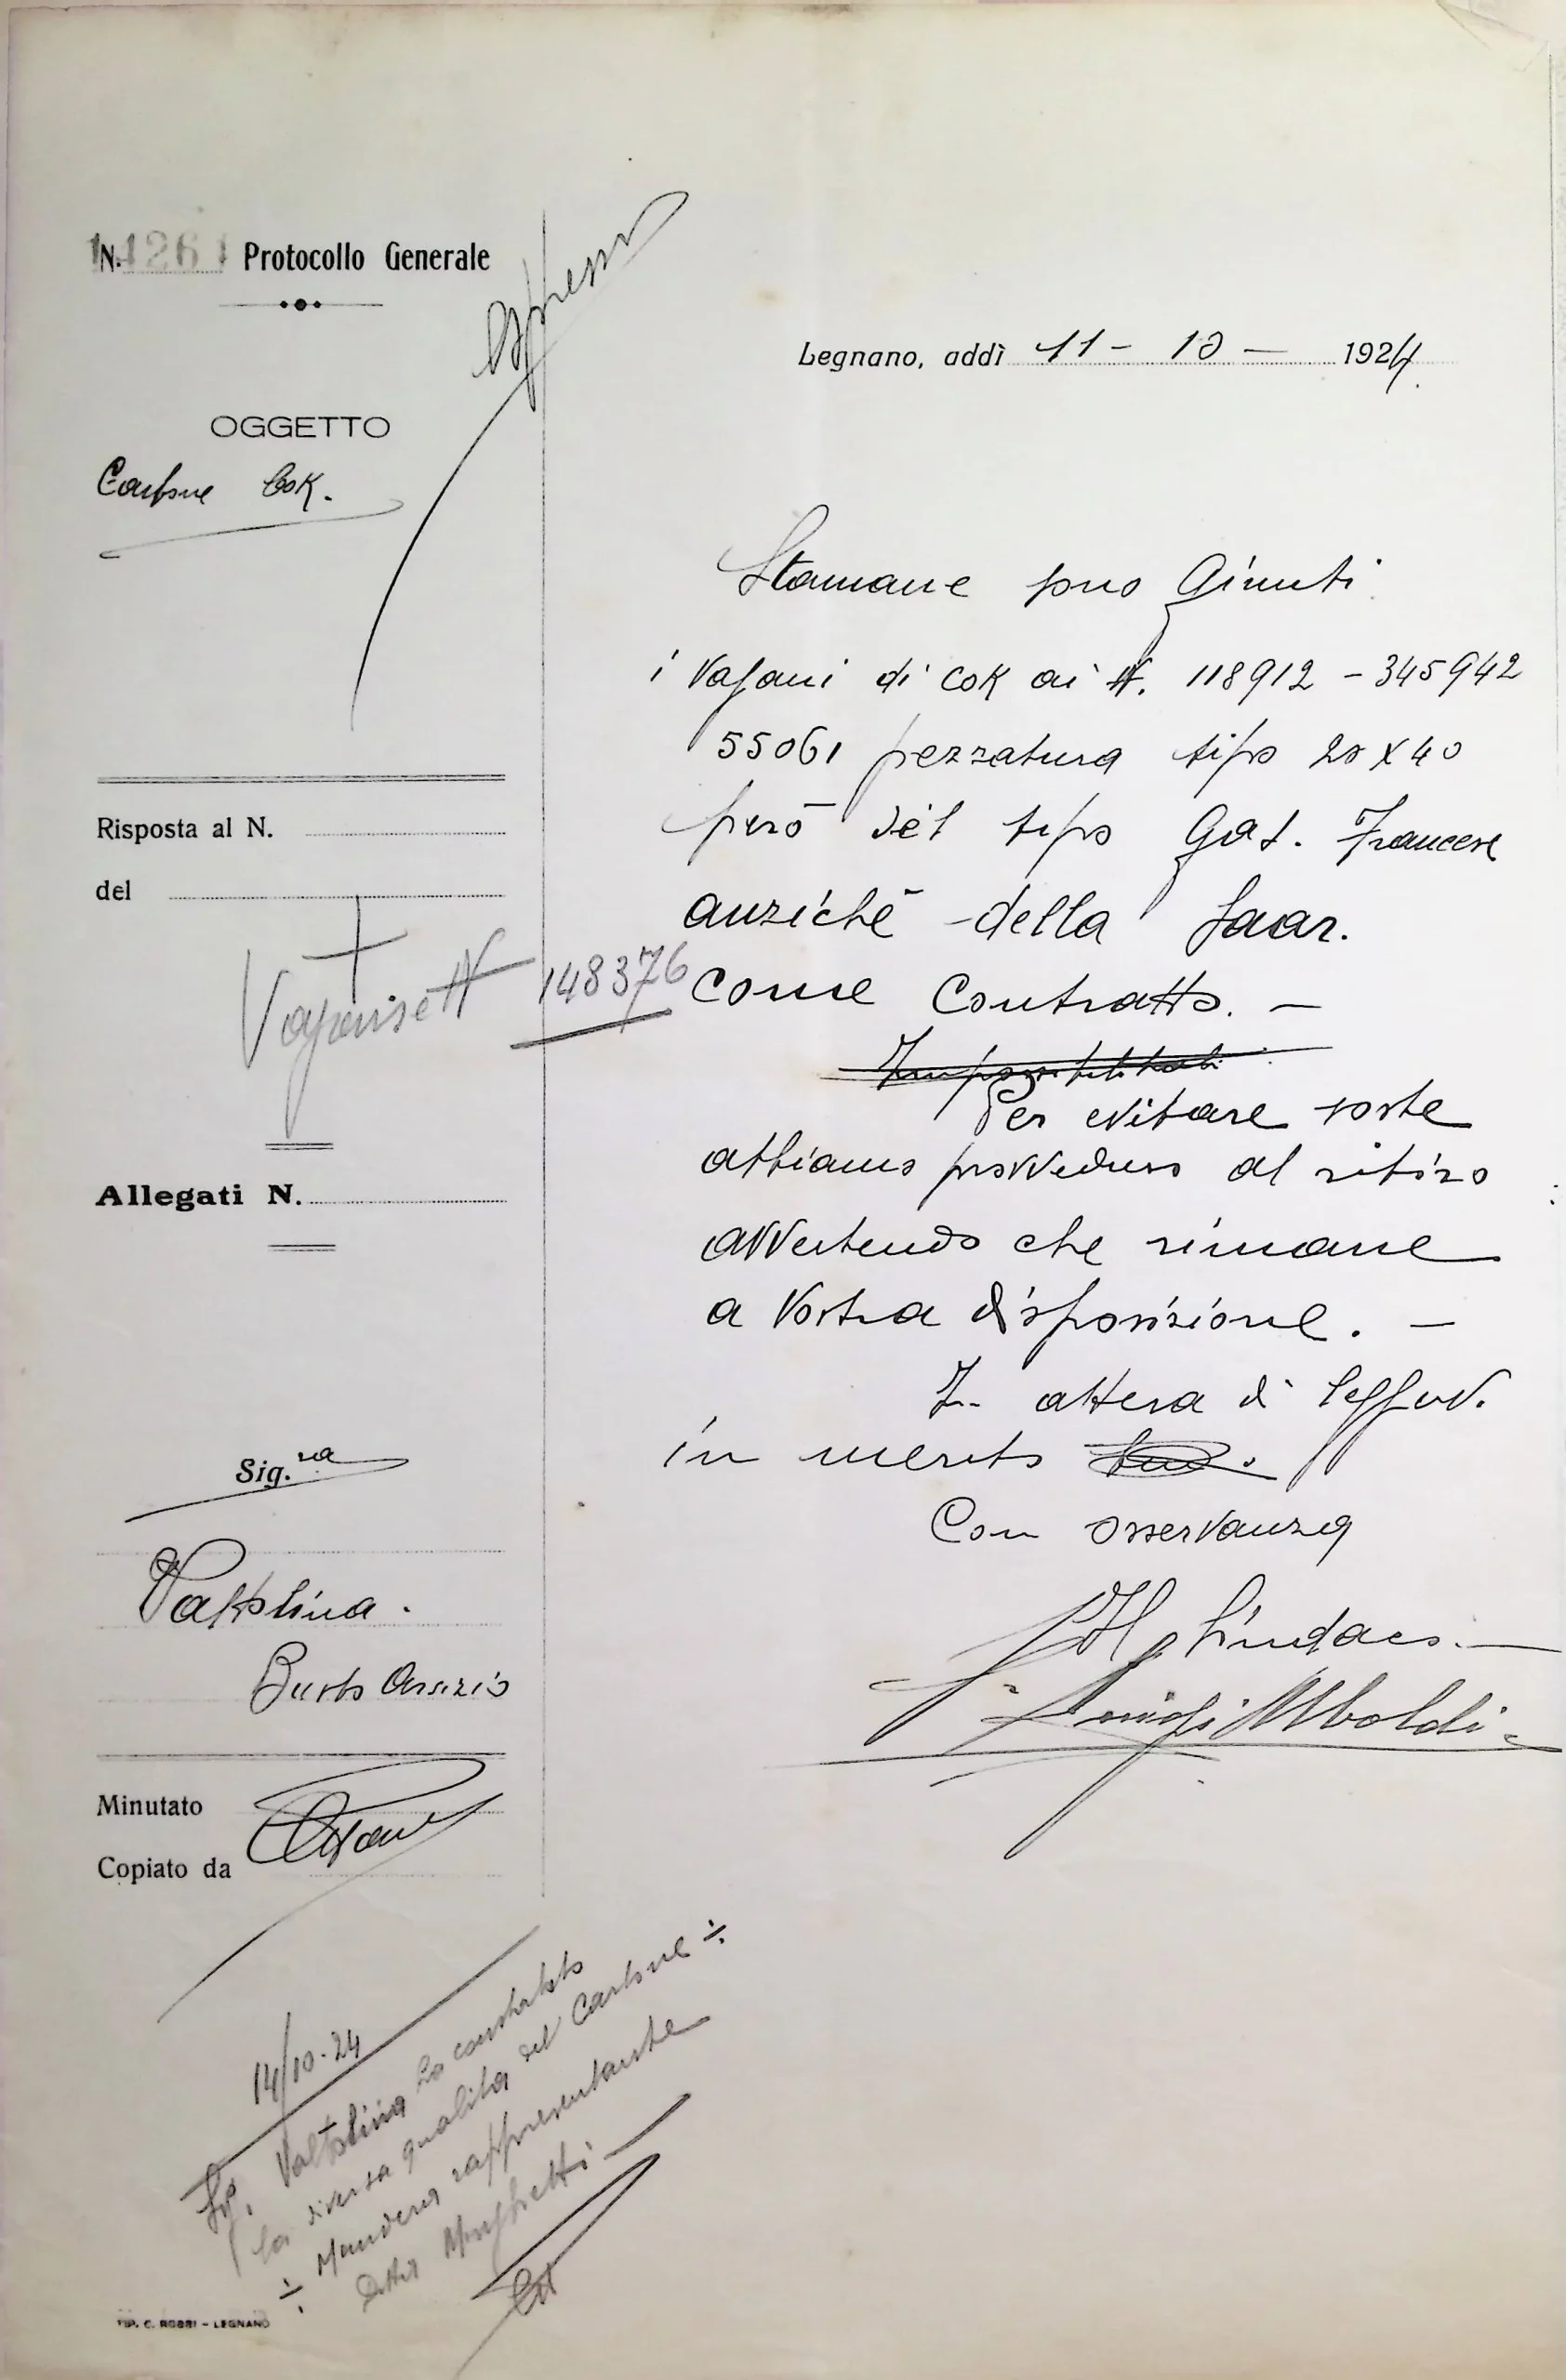 N. 14261 Protocollo Generale
Espresso
OGGETTO
Carbone Cok.
Legnano, addì 11 - 10 - 1924
Stamane sono Giunti
i Vagani di Cok ai N. 118912 - 345942
55061 pezzatura tipo 20 x 40
però del tipo Gas. Francese
anzichè della Saar.
Come Contratto. -
Per evitare soste
abbiamo provveduto al ritiro
avvertendo che rimane
a Vostra disposizione. -
In attesa di
in merito
Con osservanza
Il Sindaco.
Luigi Uboldi
Risposta al N.
del
Vagone N 148376
Allegati N.
Sig.ra
Valtolina.
Busto Arsizio
Minutato
Copiato da
14/10-24
Sig. Valtolina ha constatato
la diversa qualità del Carbone
Manderà rappresentante
Ditta Minghetti
TIP. C. ROSSI - LEGNANO